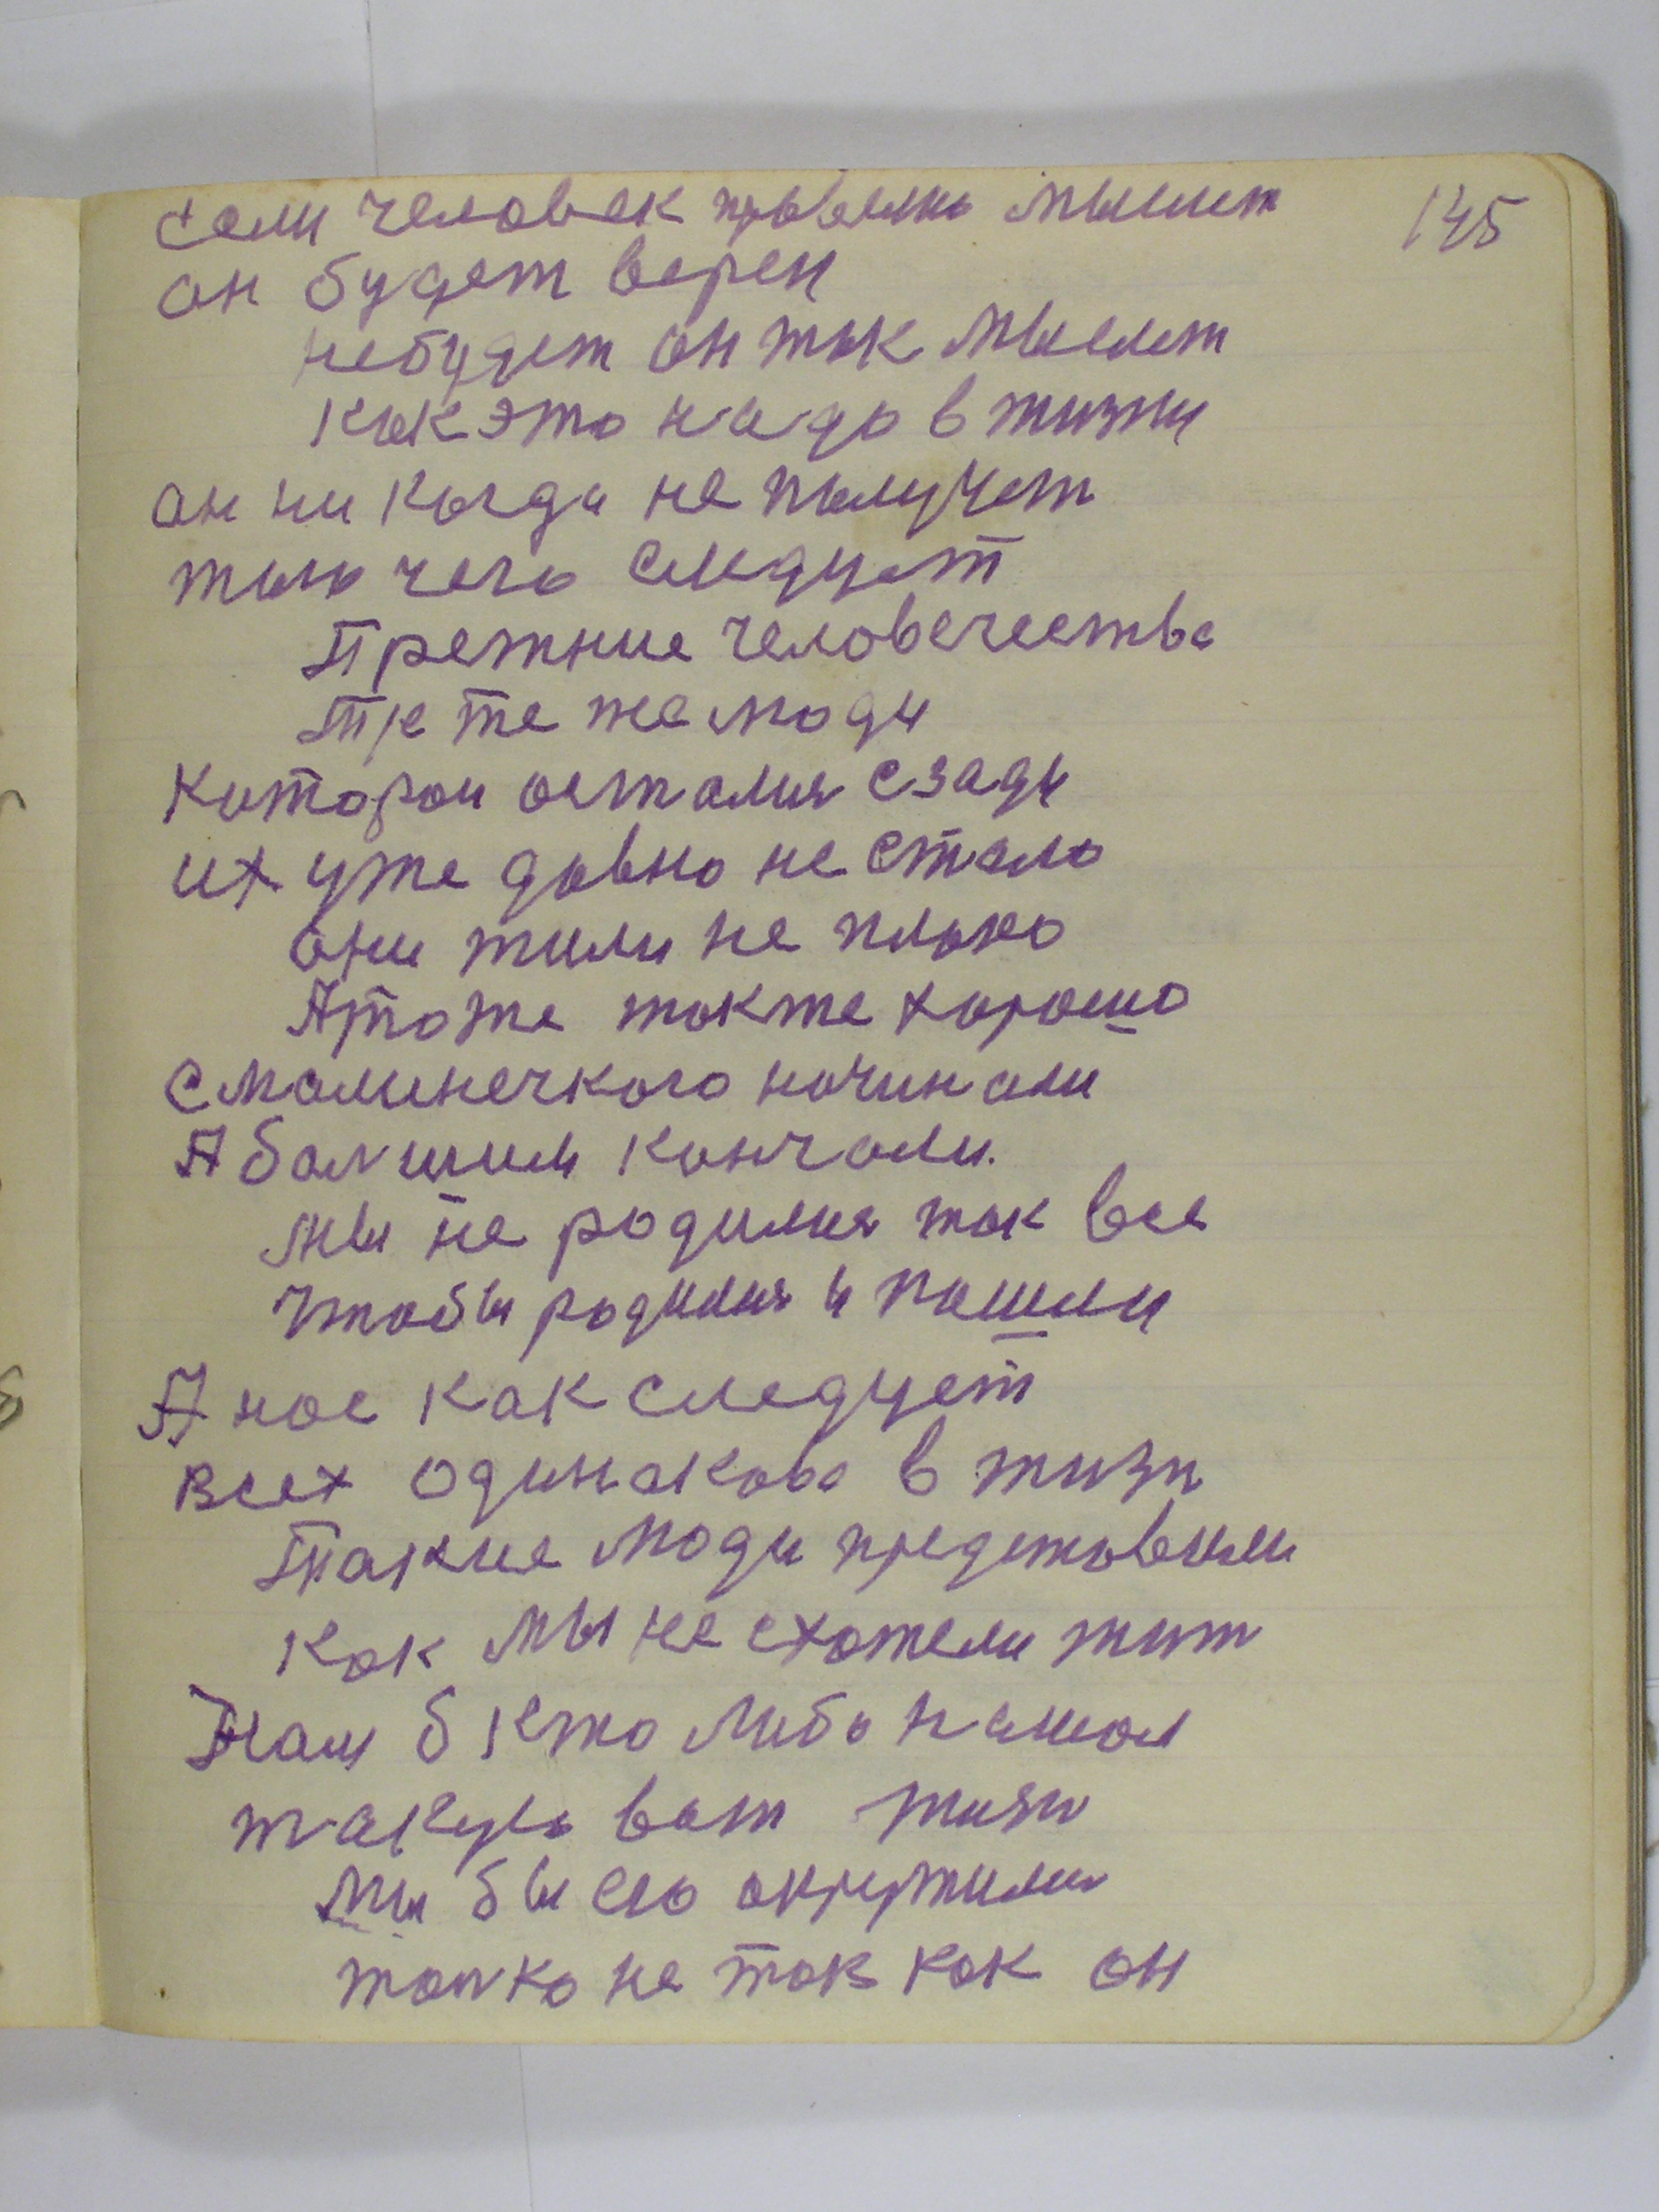 145
если человек правельно мыслит
он будет верен
небудет он так мыслет
как это надо в жизни
он ни когда не получет
того чего следует
Прежние человечества
Те те же люди
Каторои осталися сзади
их уже давно не стало
они жили не плохо
А тоже также хорошо
с малинечкого начинали
А балшим канчали.
мы не родилися так все
чтобы родилися и пошли
А нас как следует
всех одинакова в жизн
Такие люди представили
как мы не схотели жит
Нам б кто либо нашол
такую вот жизн
мы бы его окружили
толко не так как он